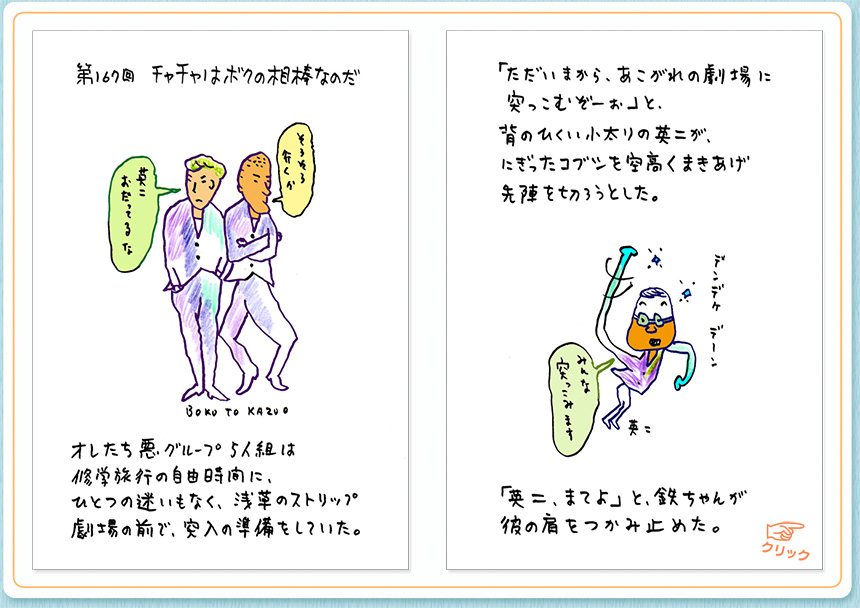 第167回 チャチャはボクの相棒なのだ
英二
おだってるな
そろそろ
行くか
BOKU TO KAZUO
オレたち悪グループ5人組は
修学旅行の自由時間に、
ひとつの迷いもなく、浅草のストリップ
劇場の前で、突入の準備をしていた。
「ただいまから、あこがれの劇場に
突っこむぞーぉ」と、
背のひくい小太りの英二が、
にぎったコブシを空高くまきあげ
先陣を切ろうとした。
デンデケ デーン
みんな
突っこみます
英二
「英二、まてよ」と、鉄ちゃんが
彼の肩をつかみ止めた。
クリック